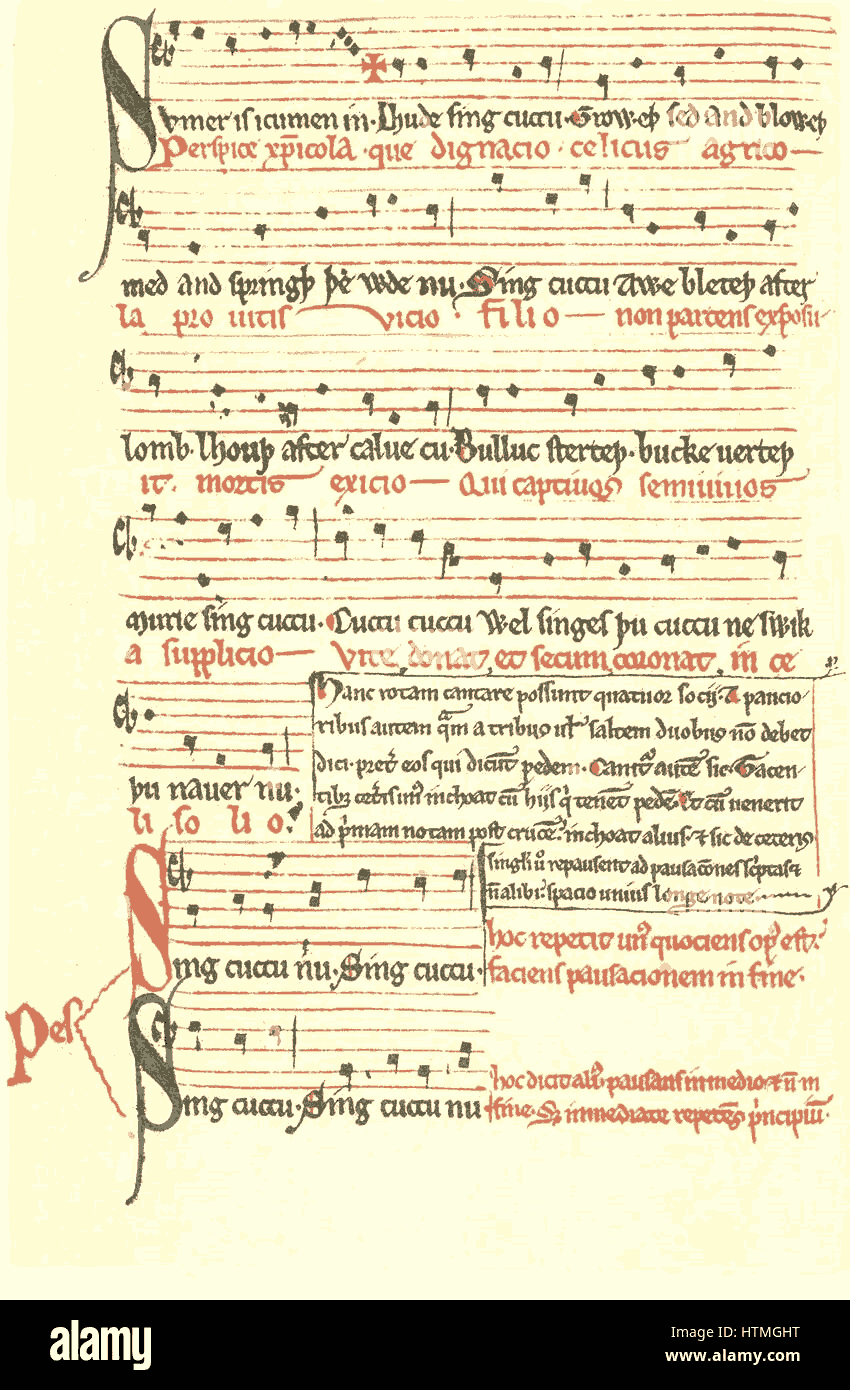 Sumer is icumen in. Lhude sing cuccu. Groweþ sed and bloweþ
Perspice xp̅icola. que dignacio. celicus agrico
med and springþ þe wde nu. Sing cuccu Awe bleteþ after
la pro uitis vicio. filio non parcens exposu
lomb. lhouþ after calue cu. Bulluc sterteþ. bucke uerteþ
it. mortis exicio Qui captiuos semiuiuos
murie sing cuccu. Cuccu cuccu Wel singes þu cuccu ne swik
a supplicio Vite donat, et secum coronat, in ce
þu nauer nu.
li so li o.
Hanc rotam cantare possunt quatuor socij. A paucio
ribus autem q̅m a tribus ul̅ saltem duobus no̅ debet
dici. pret̅ eos qui dicu̅t pedem. Canit̅ aute̅ sic. Tacen
tibȝ cet̅is un̅ inchoat cu̅ hijs q̅ tene̅t pede̅. Et cu̅ uenerit
ad p̅mam notam post cruce̅. inchoat alius. ⁊ sic de ceteris
singli u̅ repausent ad pausac̅ones sc̅ptas ⁊
n̅ alibi. spacio unius longe note.
Pes
Sing cuccu nu. Sing cuccu.
hoc repetit un̅ quociens op̅ est.
faciens pausacionem in fine.
Sing cuccu. Sing cuccu nu
hoc dicit ali̅ pausans in medio ⁊ n̅ in
fine. Sȝ immediate repetens p̅ncipiu̅.
alamy
Image ID: HTMGHT
www.alamy.com